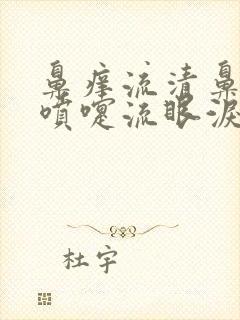 鼻痒流清鼻
喷嚏流眼泪
杜宇